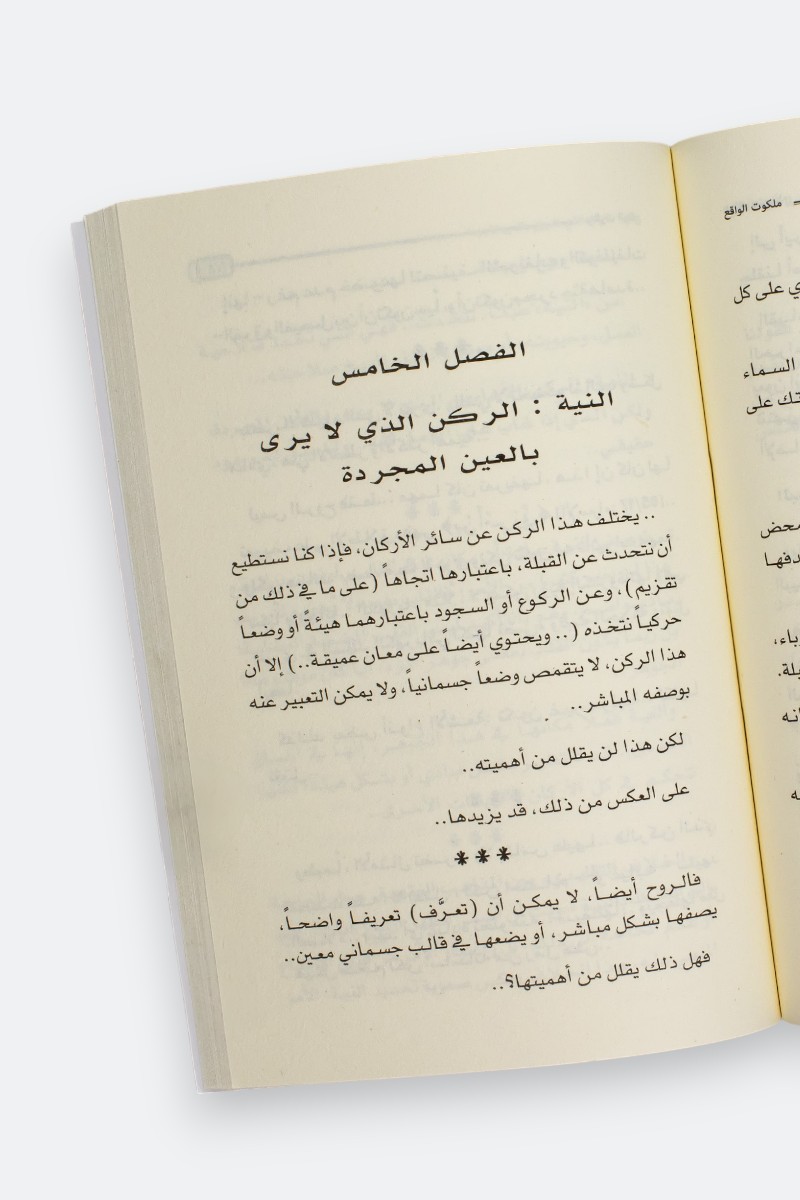 ملكوت الواقع
ي على كل
السماء
تك على
دفها
الفصل الخامس
النية : الركن الذي لا يرى
بالعين المجردة
.. يختلف هذا الركن عن سائر الأركان، فإذا كنا نستطيع
أن نتحدث عن القبلة، باعتبارها اتجاهاً (على ما في ذلك من
تقزيم)، وعن الركوع أو السجود باعتبارهما هيئةً أو وضعاً
حركياً نتخذه (.. ويحتوي أيضاً على معان عميقة..) إلا أن
هذا الركن، لا يتقمص وضعاً جسمانياً، ولا يمكن التعبير عنه
بوصفه المباشر..
لكن هذا لن يقلل من أهميته..
على العكس من ذلك، قد يزيدها..
***
فالروح أيضاً، لا يمكن أن (تعرَّف) تعريفاً واضحاً،
يصفها بشكل مباشر، أو يضعها في قالب جسماني معين..
فهل ذلك يقلل من أهميتها؟..